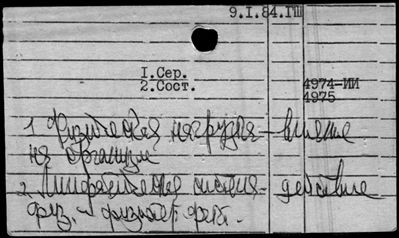 9.I.84.ГШ
I.Сер.
2.Сост.
4974-ИИ
4975
1 Физическая нагрузка - влияние
на организм
2. Лимфатическая система - действие
физ. - физиотер. фак.